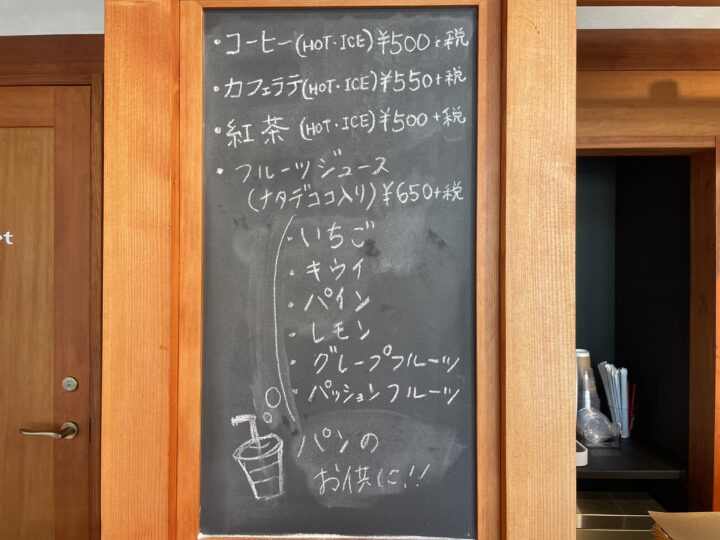 ・コーヒー(HOT・ICE)¥500+税
・カフェラテ(HOT・ICE)¥550+税
・紅茶(HOT・ICE)¥500+税
・フルーツジュース
(ナタデココ入り)¥650+税
・いちご
・キウイ
・パイン
・レモン
・グレープフルーツ
・パッションフルーツ
パンの
お供に!!